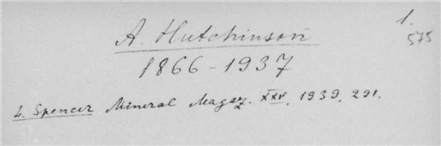 1.
575
A. Hutchinson
1866-1937
L. Spencer Mineral Magaz. XXV, 1939, 291.